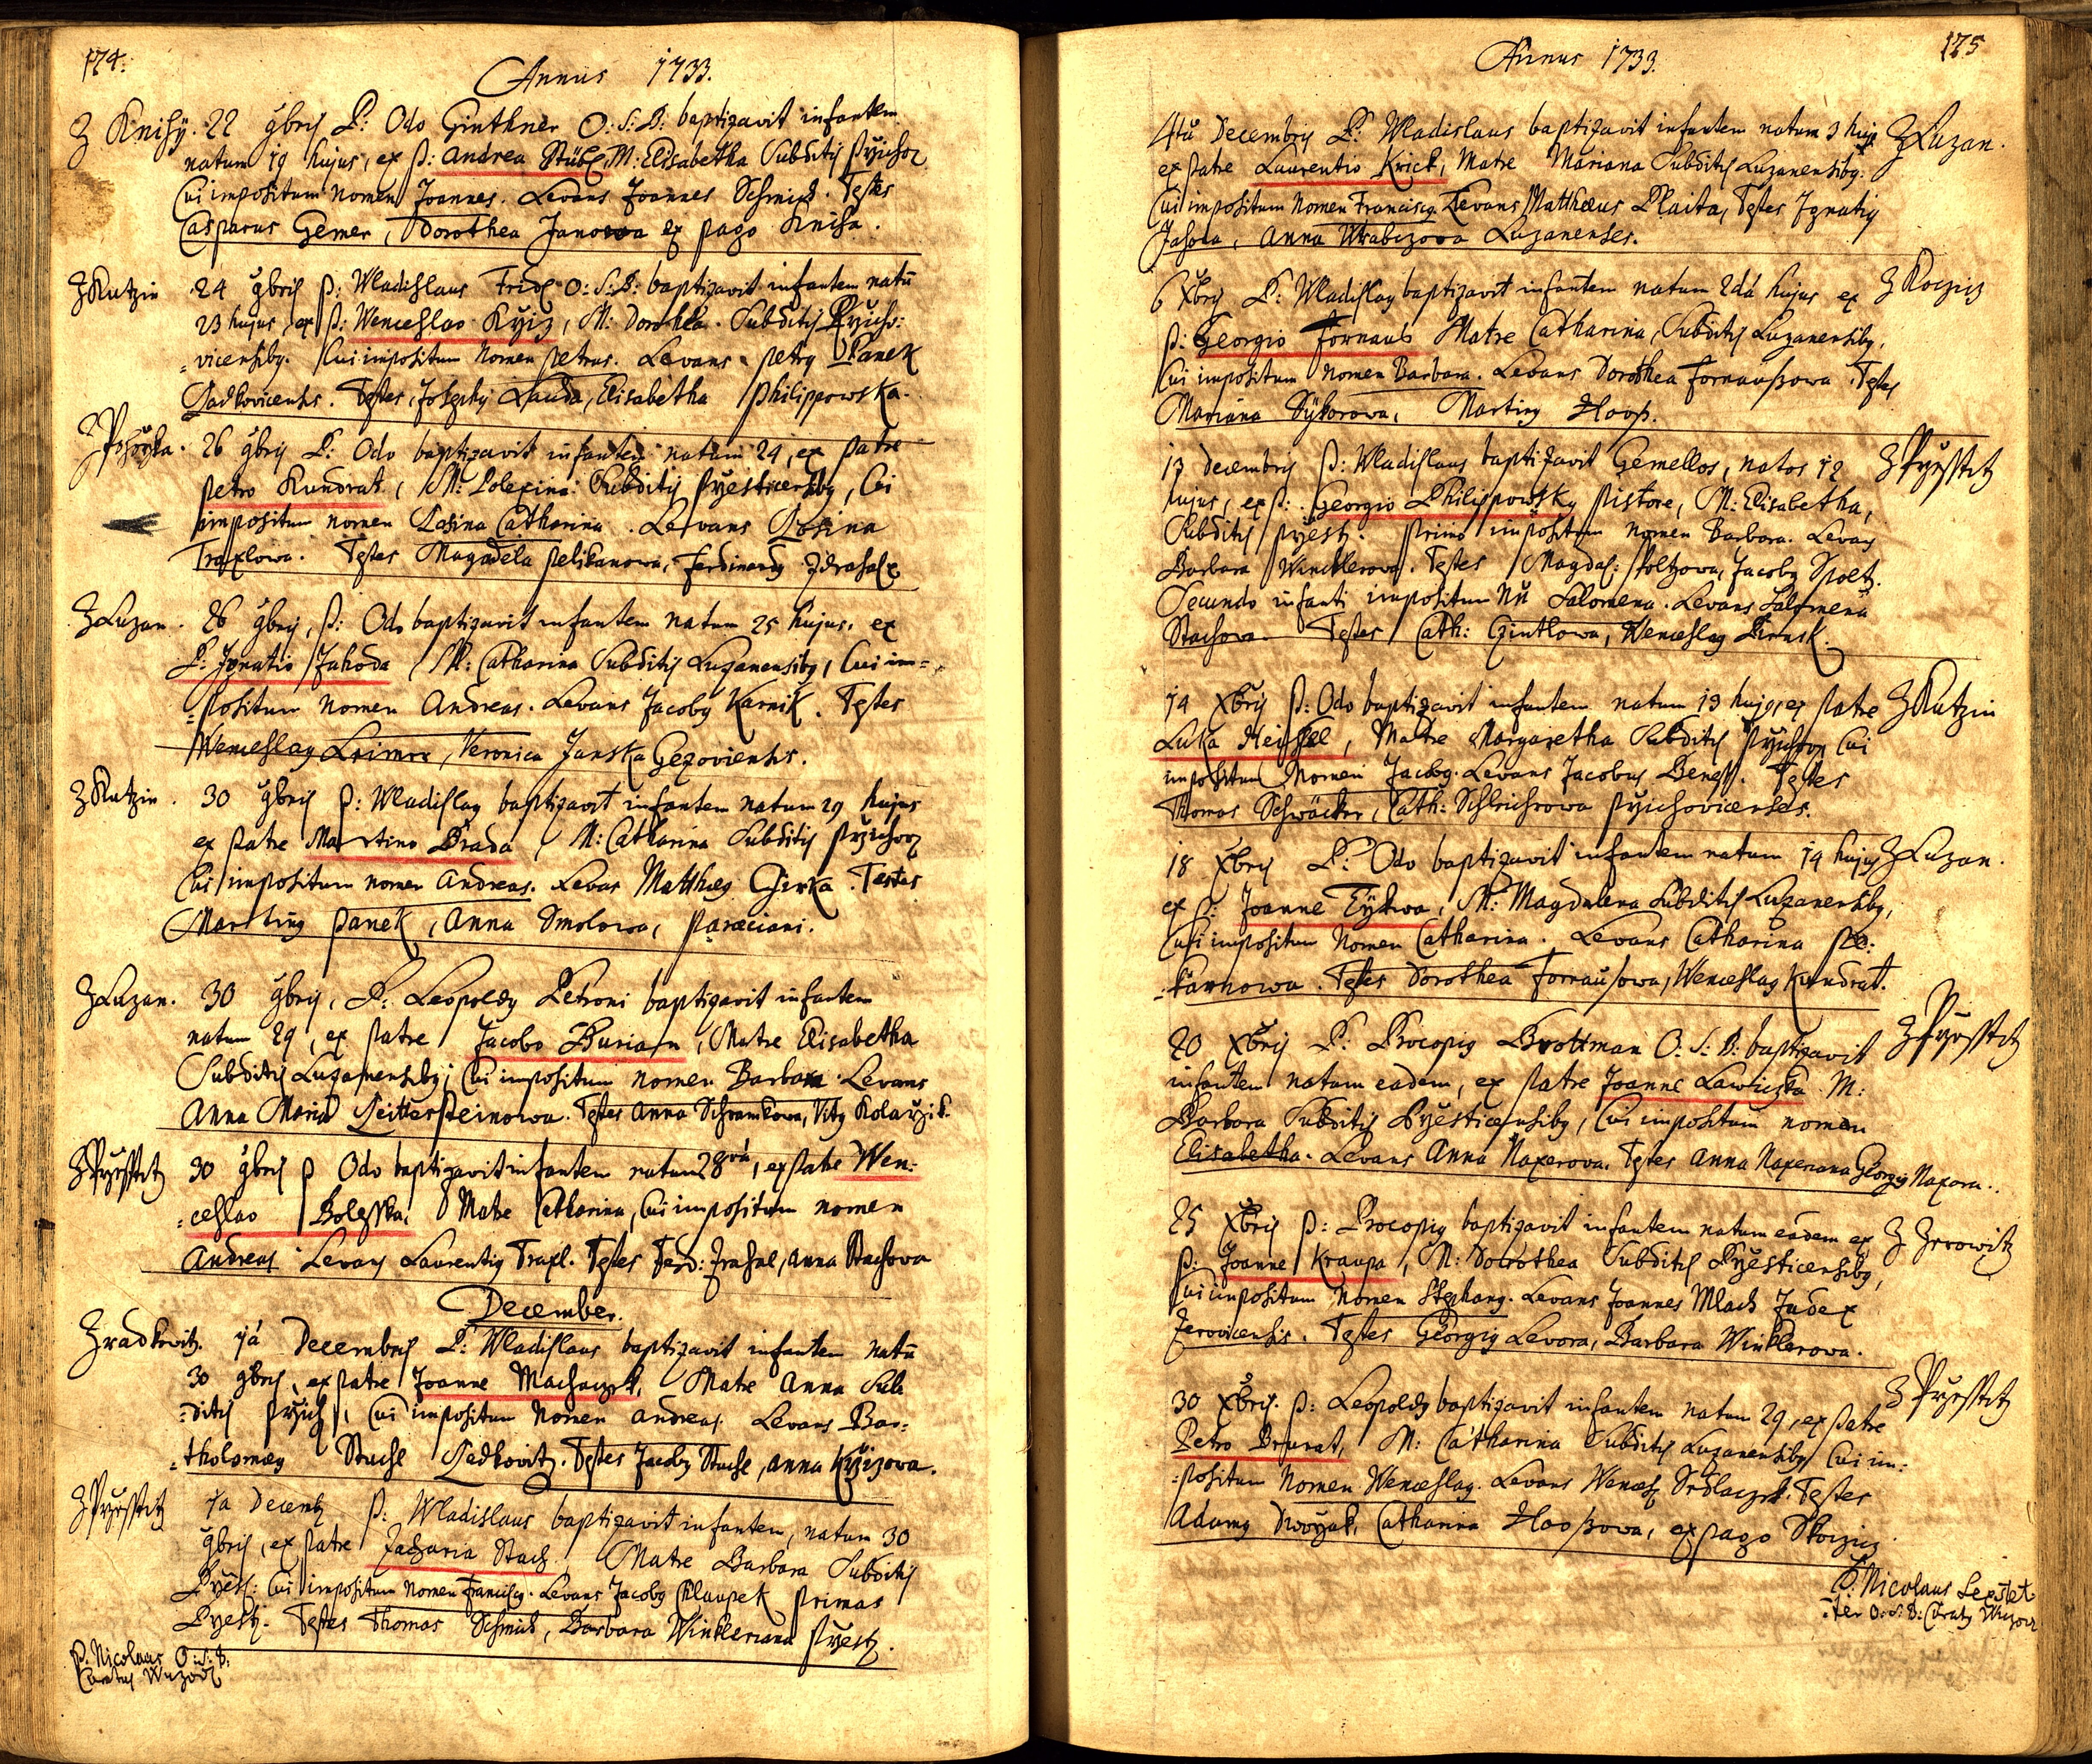 174.
Annus 1733.
Z Knihÿ. 22 9bris P: Odo Ginthner O: S: B: baptizavit infantem
natum 19 hujus, ex P: Andrea Stübl, M: Elisabetha Subditis
Cui impositum Nomen Joannes. Levans Joannes Schmid. Testes
Casparus Gemer, Dorothea Janowa ex pago Kniha.
Z Kutzin 24 9bris P: Wladislaus O: S: B: baptizavit infantem natū
23 hujus, ex P: Wenceslao Křiz, M: Dorothea. Subditis Přicho:
=vicensiby. Cui impositum Nomen Petrus. Levans Petrg Panek
Radkovicensis. Testes, Josephg Lauda, Elisabetha Philippowska.
26 9bris P: Odo baptizavit infantem natum 24, ex Patre
Petro Kundrat, M: Subditis Přesticensibg, Cui
impositum nomen Rosina Catharina. Levans Rosina
Traxlowa. Testes Magdela Pelikanowa, Ferdinandg
Z Luzan. 26 9bris, P: Odo baptizavit infantem natum 25 hujus, ex
P: Ignatio Jahoda, M: Catharina Subditis Luzanensibg, Cui im=
=positum Nomen Andreas. Levans Jacobg Karnik. Testes
Wenceslag, Veronica Janska Gezoviensis.
Z Kutzin. 30 9bris P: Wladislag baptizavit infantem natum 29 hujus
ex Patre Martino Brada, M: Catharina Subditis
Cui impositum nomen Andreas. Levas Matthæg Testes
Marting Panek, Anna Smolowa, Paræciani.
Z Luzan. 30 9bris, P: Leopoldg Petroni baptizavit infantem
natum 29, ex Patre Jacobo Burian, Matre Elisabetha
Subditis Luzanensibg; Cui impositum nomen Barbara. Levans
Anna Maria Leitterſteinowa. Testes Anna Schramkowa, Vitg Kolařzik.
Z Přesstitz 30 9bris P Odo baptizavit infantem natum 28vā, ex Patre Wen:
=ceslao Boleska, Matre Catharina, Cui impositum nomen
Andreas. Levans Laurentig Traxl. Testes Ferd: Anna Stachowa
December.
Z radkwitz. 1ā Decembris P: Wladislaus baptizavit infantem natū
30 9bris, ex Patre Joanne Machaczek, Matre Anna Sub
=ditis Přich:, Cui impositum Nomen Andreas. Levans Bar=
=tholomæg Stuchl Radkovitz. Testes Jacobg Stuchl, Anna Křizowa.
Z Přesstitz 1ā Decemb P: Wladislaus baptizavit infantem, natum 30
9bris, ex Patre Zacharia Stach, Matre Barbara Subditis
Přest: Cui impositum Nomen Franciscg. Levans Jacobg Klaupek Primas
Přest. Testes Thomas Schmid, Barbara Winkleriana Přest.
P. Nicolaus O: S: B:
Curatus
Annus 1733.
175
4tā Decembris P: Wladislaus baptizavit infantem natum 3 hujg Z Luzan.
ex Patre Laurentio Krick, Matre Mariana Subditis Luzanensibg.
Cui impositum Nomen Franciscg. Levans Matthæus Plaita, Testes Ignatig
Jahoda, Anna Luzanenses.
6 Xbris P: Wladislag baptizavit infantem natum 2dā hujus ex
P: Georgio Fornaus Matre Catharina, Subditis Luzanensibg,
Cui impositum nomen Barbara. Levans Dorothea Fornauſsowa. Testes
Mariana Sÿkorowa, Marting Hooſs.
13 Decembris P: Wladislaus baptizavit Gemellos, natos 12 Z Přesstitz
hujus, ex P: Georgio Philippowsky Pistore, M: Elisabetha,
Subditis Přest. Primo impositum nomen Barbara. Levans
Barbara Wincklerowa. Testes Magdal: Spoltzowa, Jacobg Spoltz.
Secundo infanti impositum Nū Salomena. Levans Salomena
Stachowa. Testes Cath: Czintlowa, Wenceslag
14 Xbris P: Odo baptizavit infantem natum 13 hujg, ex Patre Z Kutzin
Luka Heissel, Matre Margaretha Subditis Cui
impositum Nomen Jacobg. Levans Jacobus Beness. Testes
Thomas Schwäcker, Cath: Přichovicenses.
18 Xbris P: Odo baptizavit infantem natum 14 hujg Z Luzan.
ex P: Joanne Týkwa, M: Magdalena Subditis Luzanensibg,
Cui impositum Nomen Catharina. Levans Catharina Pe:
=karnowa. Testes Dorothea Fornauſsowa, Wenceslag Kundrat.
20 Xbris P: Procopig Brottman O: S: B: baptizavit Z Přesstitz
infantem natum eadem, ex Patre Joanne Lawiczka M:
Barbara Subditis Přesticensibg, Cui impositum nomen
Elisabetha. Levans Anna Naxerova. Testes Anna Naxeriana Georgig Naxera.
25 Xbris P: Procopig baptizavit infantem natum eadem ex Z Zerowitz
P: Joanne Kraupa, M: Dorothea Subditis Přesticensibg,
Cui impositum Nomen Stephang. Levans Joannes Mlach Judex
Zerovicensis. Testes Georgig Levora, Barbara Winklerowa.
30 Xbris. P: Leopoldg baptizavit infantem natum 29, ex Patre Z Přesstitz
Petro Brunat, M: Catharina Subditis Luzanensibg Cui im:
=positum Nomen Wenceslag. Levans Wencesl Sedlaczek. Testes
Adamg Dworzak, Catharina Hooſsowa, ex pago Skoczicz.
P: Nicolaus
=ter O: S: B: Curatg